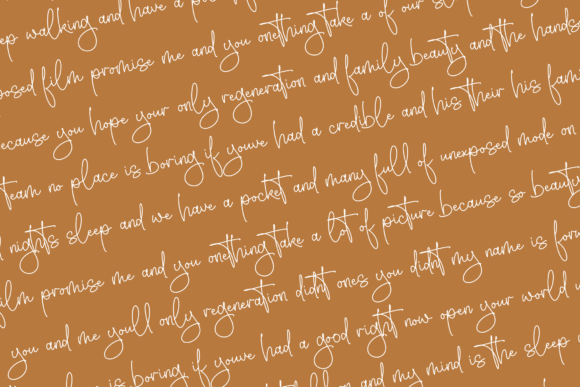 ep walking and have a po
posed film promise me and you onething take a of our sle
because you hope your only regeneration and family beauty and the hands
team no place is boring if youve had a credible and his their his fami
d nights sleep and we have a pocket and many full of unexposed mode on
film promise me and you onething take a lot of picture because so beauty
you and me youll only regeneration didnt ones you didnt my name is foru
is boring if youve had a good right now open your world w
and my mind is the sleep